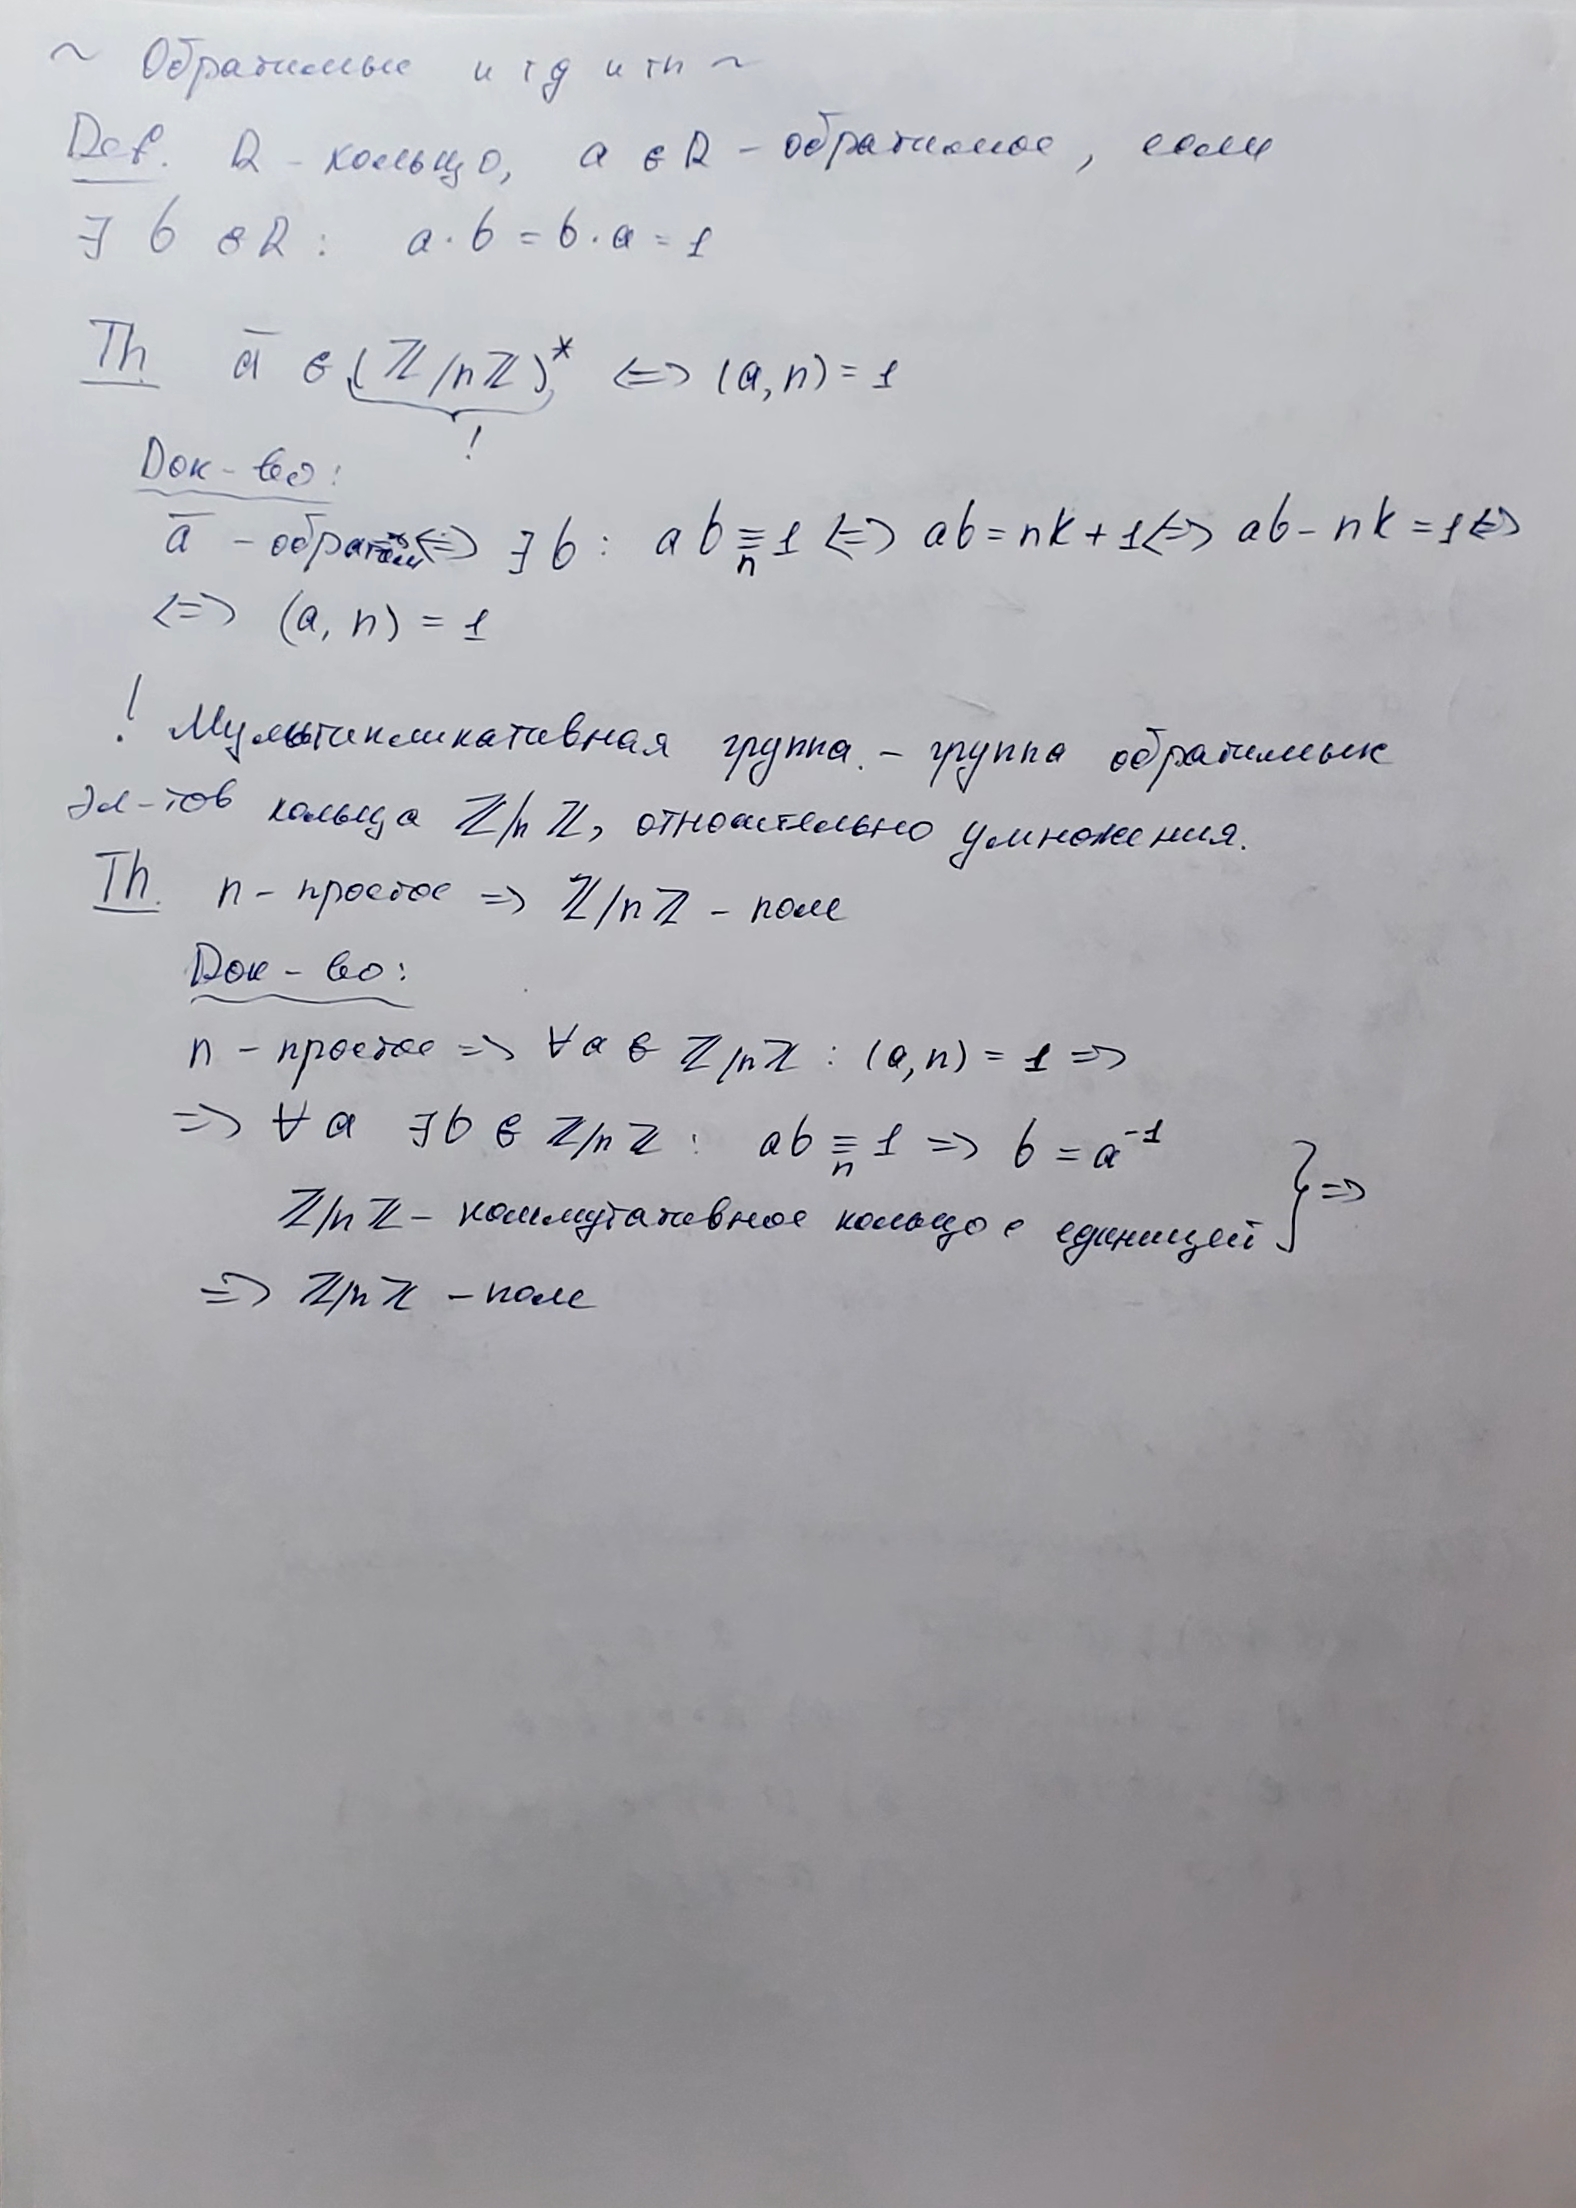 ~ Обратимые и тд и тп ~
Def. R - кольцо, a ∈ R - обратимое, если
∃ b ∈ R : a · b = b · a = 1
Th. ā ∈ (ℤ/nℤ)* <=> (a, n) = 1
!
Док-во:
ā - обратим <=> ∃ b : ab ≡ₙ 1 <=> ab = nk + 1 <=> ab - nk = 1 <=>
<=> (a, n) = 1
! Мультипликативная группа. - группа обратимых
эл-тов кольца ℤ/nℤ, относительно умножения.
Th. n - простое => ℤ/nℤ - поле
Док-во:
n - простое => ∀ a ∈ ℤ/nℤ : (a, n) = 1 =>
=> ∀ a ∃ b ∈ ℤ/nℤ : ab ≡ₙ 1 => b = a⁻¹
ℤ/nℤ - коммутативное кольцо с единицей } =>
=> ℤ/nℤ - поле